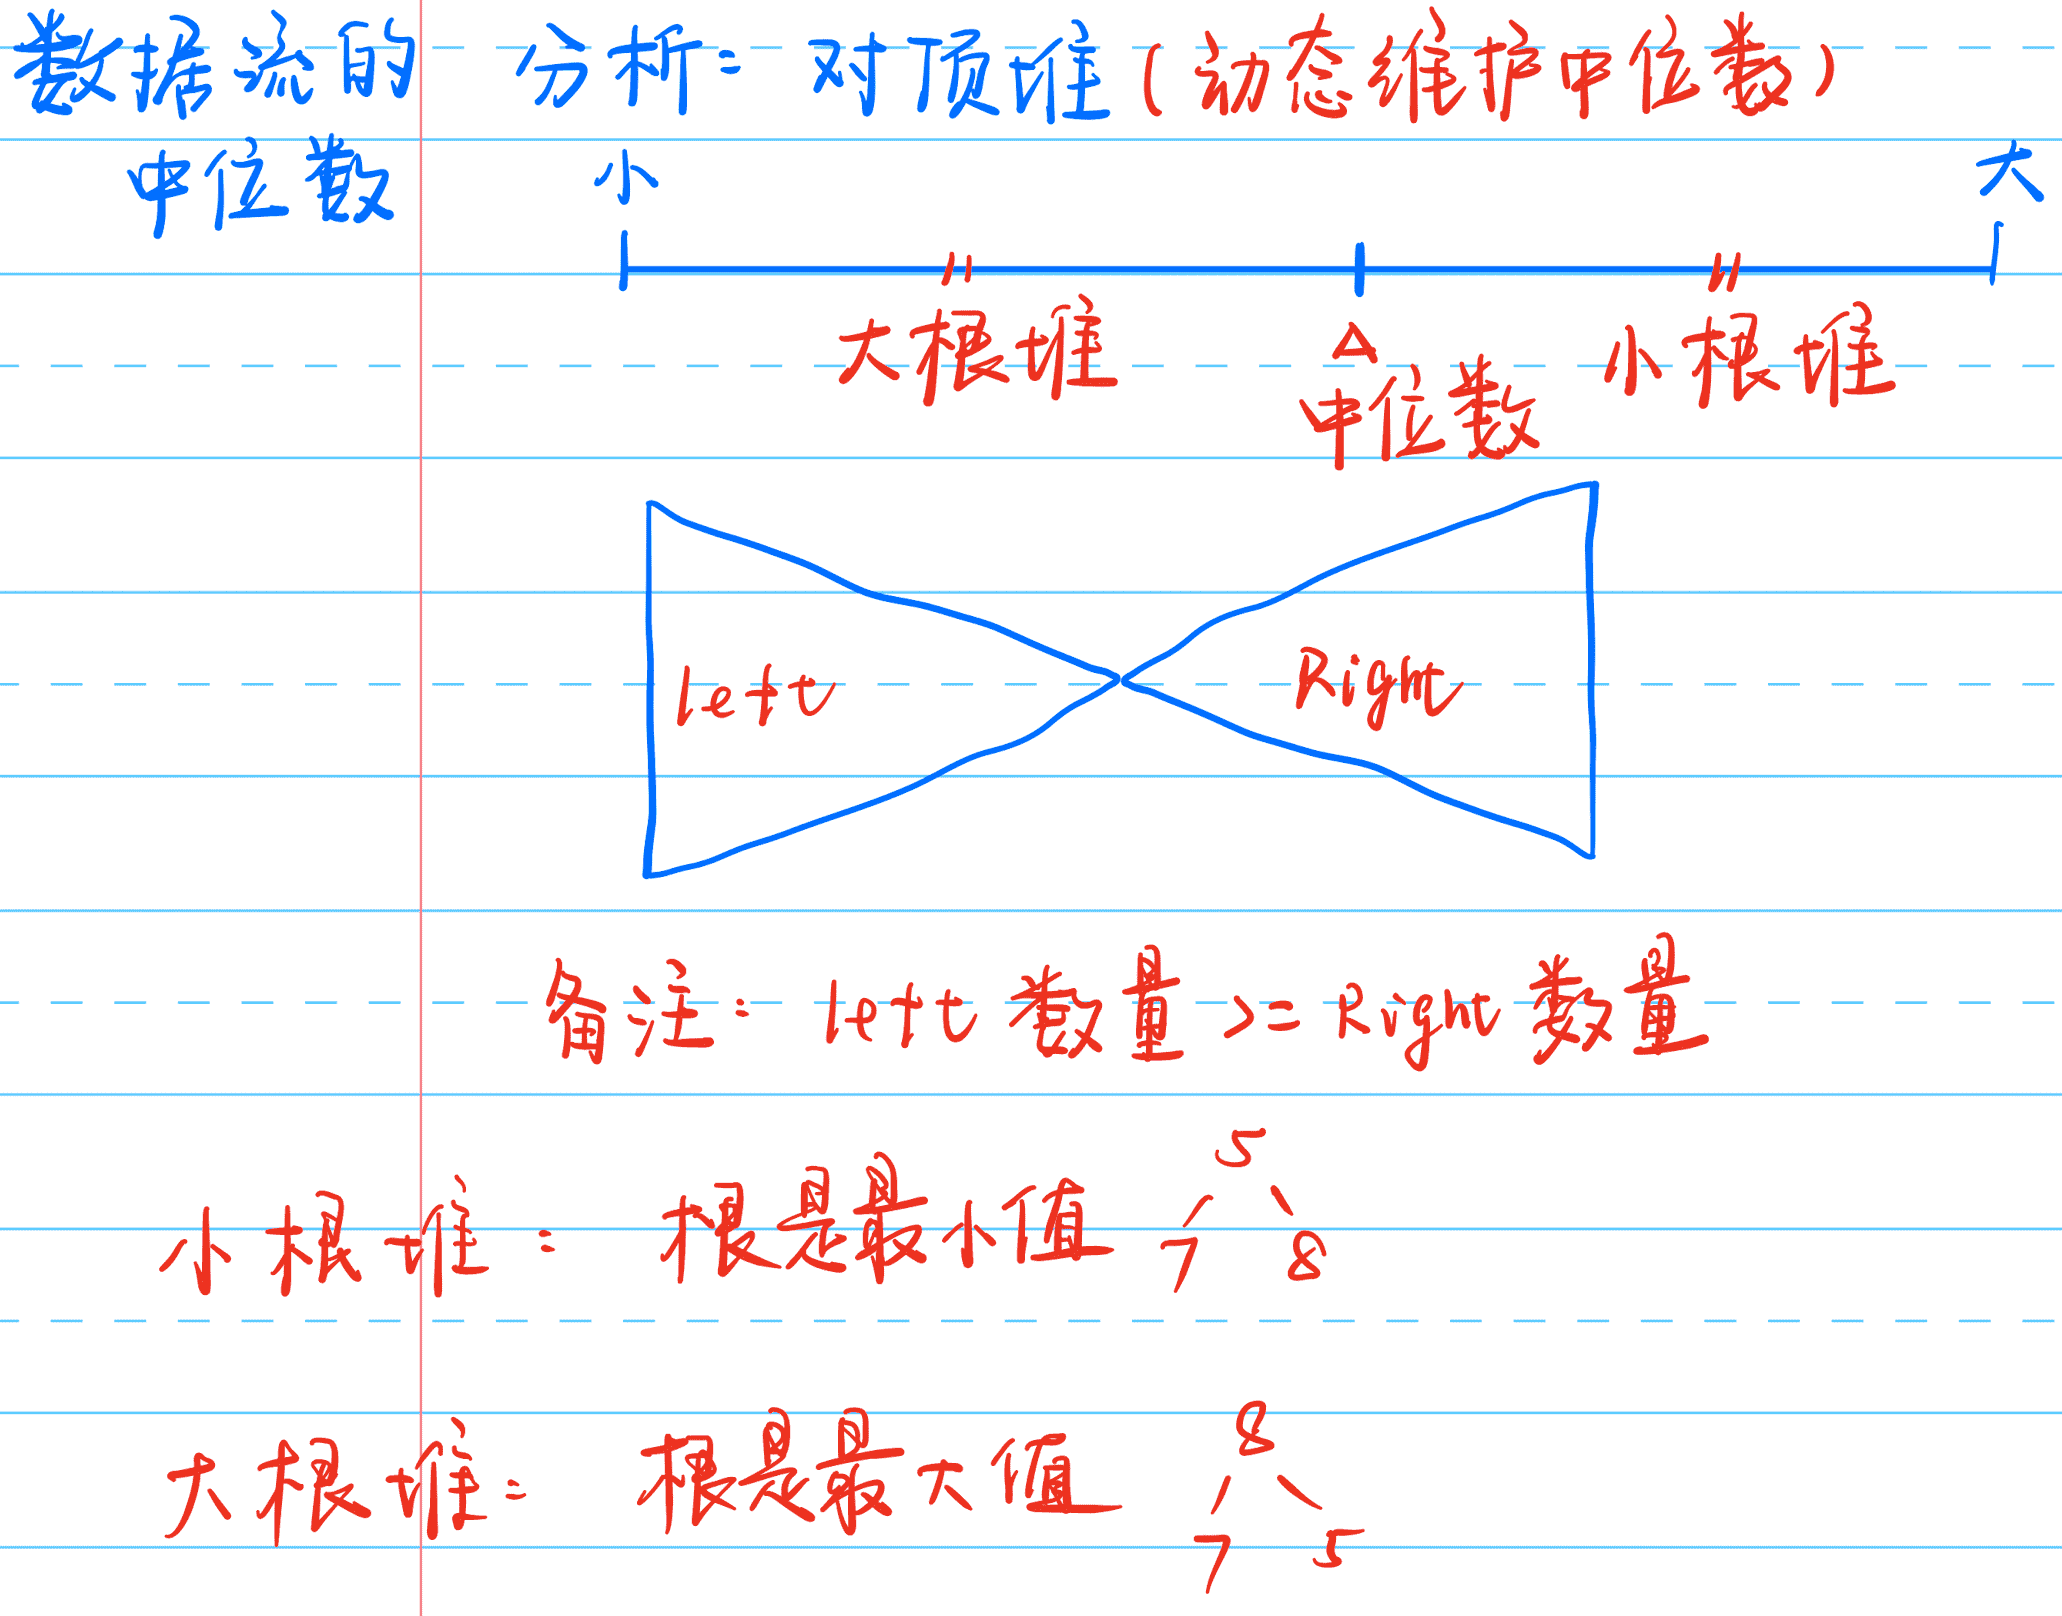 数据流的
中位数
分析: 对顶堆(动态维护中位数)
小 大
大根堆 小根堆
中位数
left Right
备注: left 数量 >= Right 数量
小根堆: 根是最小值
5
7 8
大根堆: 根是最大值
8
7 5